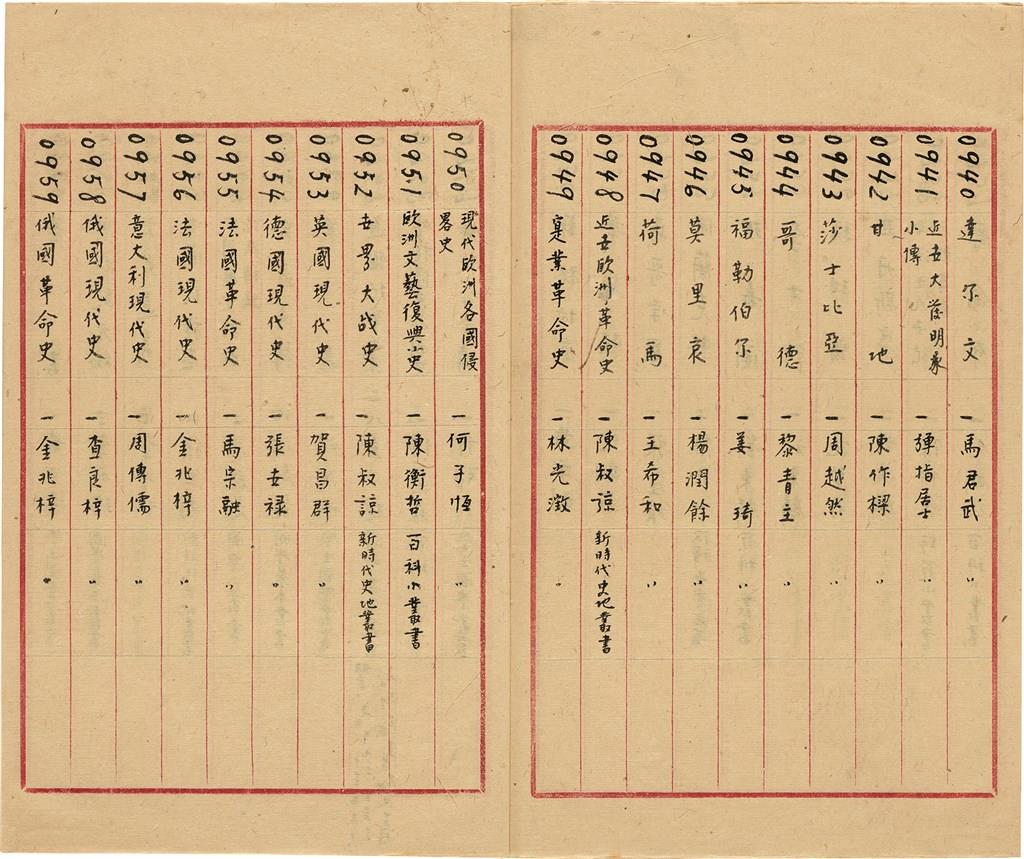 0940 達尔文 一 馬君武
0941 近世大發明家小傳 一 彈指居士 〃
0942 甘地 一 陳作樑 〃
0943 莎士比亞 一 周越然 〃
0944 哥德 一 黎青主 〃
0945 福勒伯尔 一 姜琦 〃
0946 莫里哀 一 楊潤餘 〃
0947 荷馬 一 王希和 〃
0948 近世欧洲革命史 一 陳叔諒 新時代史地叢書
0949 寔業革命史 一 林光澂 〃
0950 現代欧洲各國侵畧史 一 何子恒 〃
0951 欧洲文藝復興小史 一 陳衡哲 百科小叢書
0952 世界大战史 一 陳叔諒 新時代史地叢書
0953 英國現代史 一 賀昌群 〃
0954 德國現代史 一 張世禄 〃
0955 法國革命史 一 馬宗融 〃
0956 法國現代史 一 金兆梓 〃
0957 意大利現代史 一 周傳儒 〃
0958 俄國現代史 一 查良梓 〃
0959 俄國革命史 一 金兆梓 〃